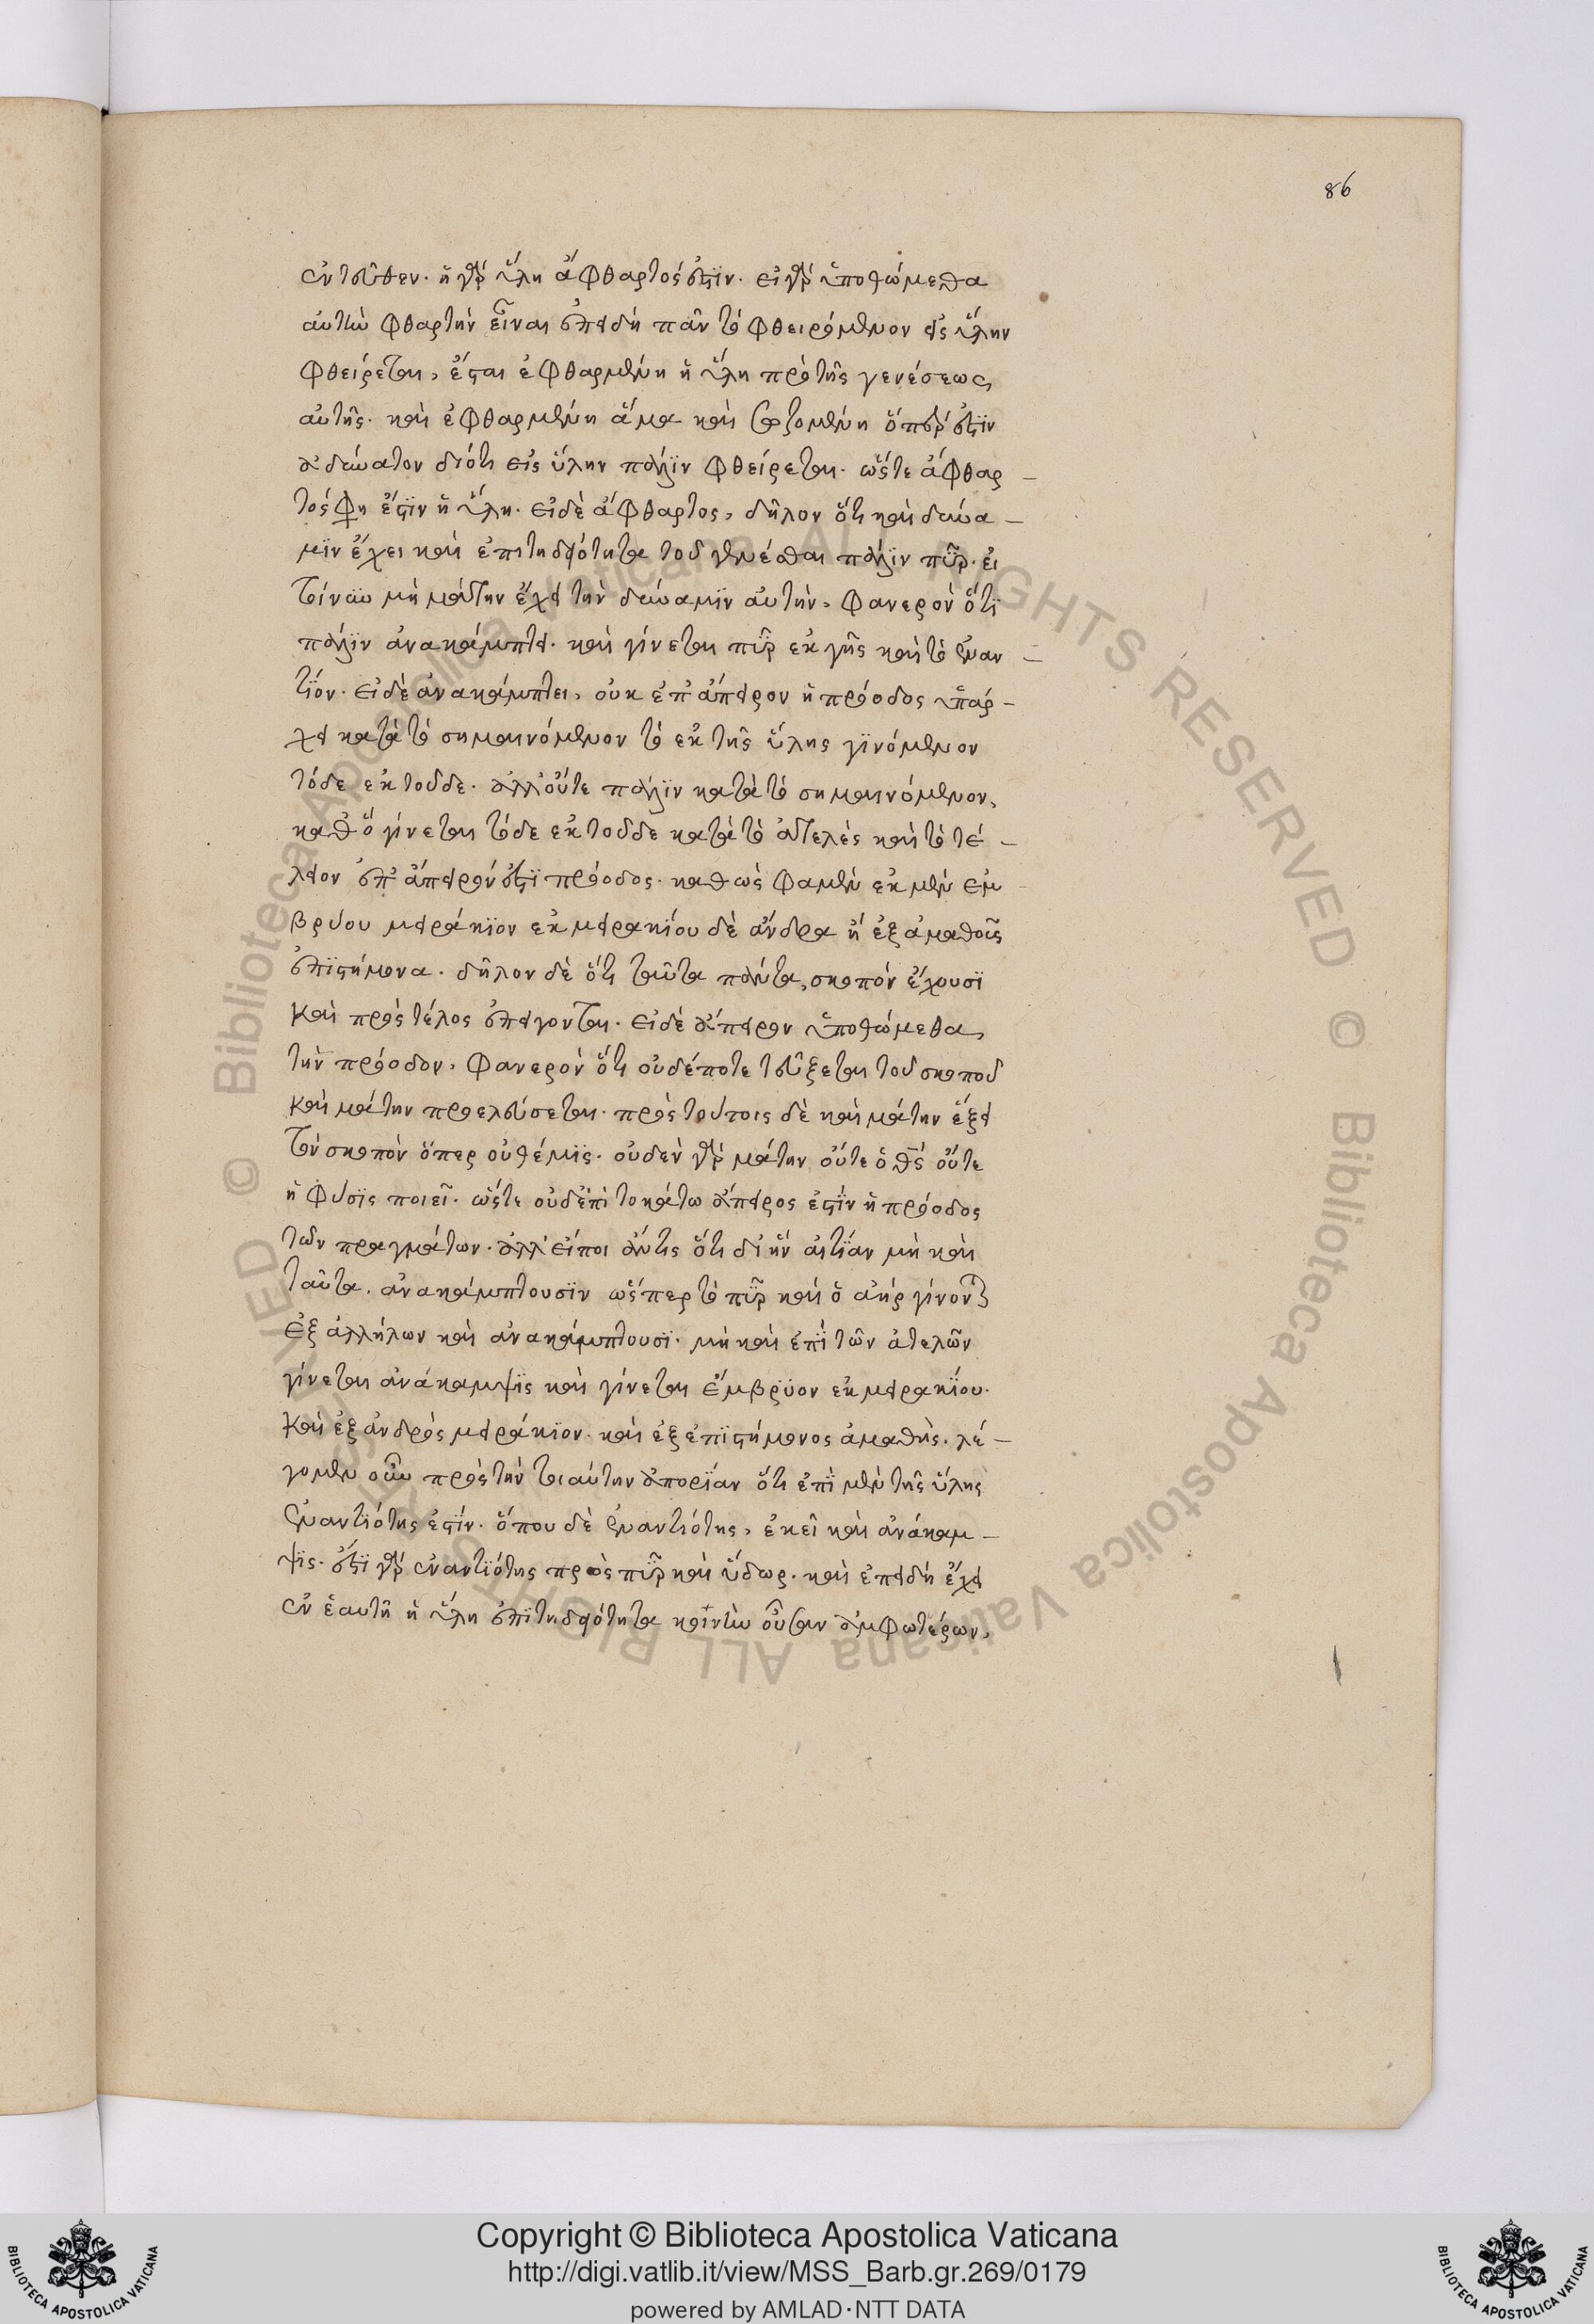 86
ἐντεῦθεν. ἡ γὰρ ὕλη ἄφθαρτός ἐστϊν. εἰ γὰρ ὑποθώμεθα
αὐτὴν φθαρτὴν εἶναι ἐπειδὴ πᾶν τὸ φθειρόμενον εἰς ὕλην
φθείρεται, ἔσται ἐφθαρμένη ἡ ὕλη πρὸ τῆς γενέσεως
αὐτῆς. καὶ ἐφθαρμένη ἅμα καὶ σωζομένη ὅπερ ἐστϊν
ἀδύνατον διότι εἰς ὕλην πάλϊν φθείρεται. ὥστε ἄφθαρ-
τός φη ἐστϊν ἡ ὕλη. εἰ δὲ ἄφθαρτος, δῆλον ὅτι καὶ δύνα-
μϊν ἔχει καὶ ἐπιτηδειότητα τοῦ γενέσθαι πάλϊν πῦρ. εἰ
τοίνυν μὴ μάτην ἔχει τὴν δύναμϊν αὐτὴν, φανερὸν ὅτϊ
πάλϊν ἀνακάμπτει. καὶ γίνεται πῦρ ἐκ γῆς καὶ τὸ ἐναν-
τϊόν. εἰ δὲ ἀνακάμπτει, οὐκ ἐπ' ἄπειρον ἡ πρόοδος ὑπάρ-
χει κατὰ τὸ σημαινόμενον τὸ ἐκ τῆς ὕλης γϊνόμενον
τόδε ἐκ τοῦδε. ἀλλ' οὔτε πάλϊν κατὰ τὸ σημαινόμενον,
καθ' ὃ γίνεται τόδε ἐκ τοῦδε κατὰ τὸ ἀτελὲς καὶ τὸ τέ-
λειον ἐπ' ἄπειρόν ἐστϊ πρόοδος. καθὼς φαμὲν ἐκ μὲν ἐμ
βρύου μειράκϊον ἐκ μειρακίου δὲ ἄνδρα ἢ ἐξ ἀμαθοῦς
ἐπϊστήμονα. δῆλον δὲ ὅτι ταῦτα πάντα, σκοπόν ἔχουσϊ
καὶ πρὸς τέλος ἐπείγονται. εἰ δὲ ἄπειρον ὑποθώμεθα,
τὴν πρόοδον, φανερὸν ὅτι οὐδέποτε τεύξεται τοῦ σκοποῦ
καὶ μάτην προελεύσεται. πρὸς τούτοις δὲ καὶ μάτην ἕξει
τὸν σκοπὸν ὅπερ οὐ θέμϊς. οὐδὲν γὰρ μάτην οὔτε ὁ θς οὔτε
ἡ φύσϊς ποιεῖ. ὥστε οὐδ' ἐπὶ το κάτω ἄπειρος ἐστϊν ἡ πρόοδος
τῶν πραγμάτων. ἀλλ' εἴποι ἄν τις ὅτι δι' ἣν αἰτϊαν μὴ καὶ
ταῦτα. ἀνακάμπτουσϊν ὥσπερ τὸ πῦρ καὶ ὁ ἀὴρ γίνονται
ἐξ ἀλλήλων καὶ ἀνακάμπτουσϊ. μὴ καὶ ἐπϊ τῶν ἀτελῶν
γίνεται ἀνάκαμψϊς καὶ γίνεται ἔμβρϋον ἐκ μειρακϊου.
καὶ ἐξ ἀνδρὸς μειράκϊον. καὶ ἐξ ἐπϊστήμονος ἀμαθὴς. λέ-
γομεν οὖν πρὸς τὴν τοιαύτην ἀπορϊαν ὅτι ἐπϊ μὲν τῆς ὕλης
ἐναντϊότης ἐστϊν. ὅπου δὲ ἐναντιότης, ἐκεῖ καὶ ἀνάκαμ-
ψϊς. ἔστϊ γὰρ ἐναντϊότης πρὸς πῦρ καὶ ὕδωρ. καὶ ἐπειδὴ ἔχει
ἐν ἑαυτῇ ἡ ὕλη ἐπϊτηδειότητα ἀμφωτέρων,
Copyright © Biblioteca Apostolica Vaticana
http://digi.vatlib.it/view/MSS_Barb.gr.269/0179
powered by AMLAD·NTT DATA
BIBLIOTECA APOSTOLICA VATICANA
BIBLIOTECA APOSTOLICA VATICANA
© Biblioteca Apostolica Vaticana ALL RIGHTS RESERVED © Biblioteca Apostolica Vaticana ALL RIGHTS RESERVED